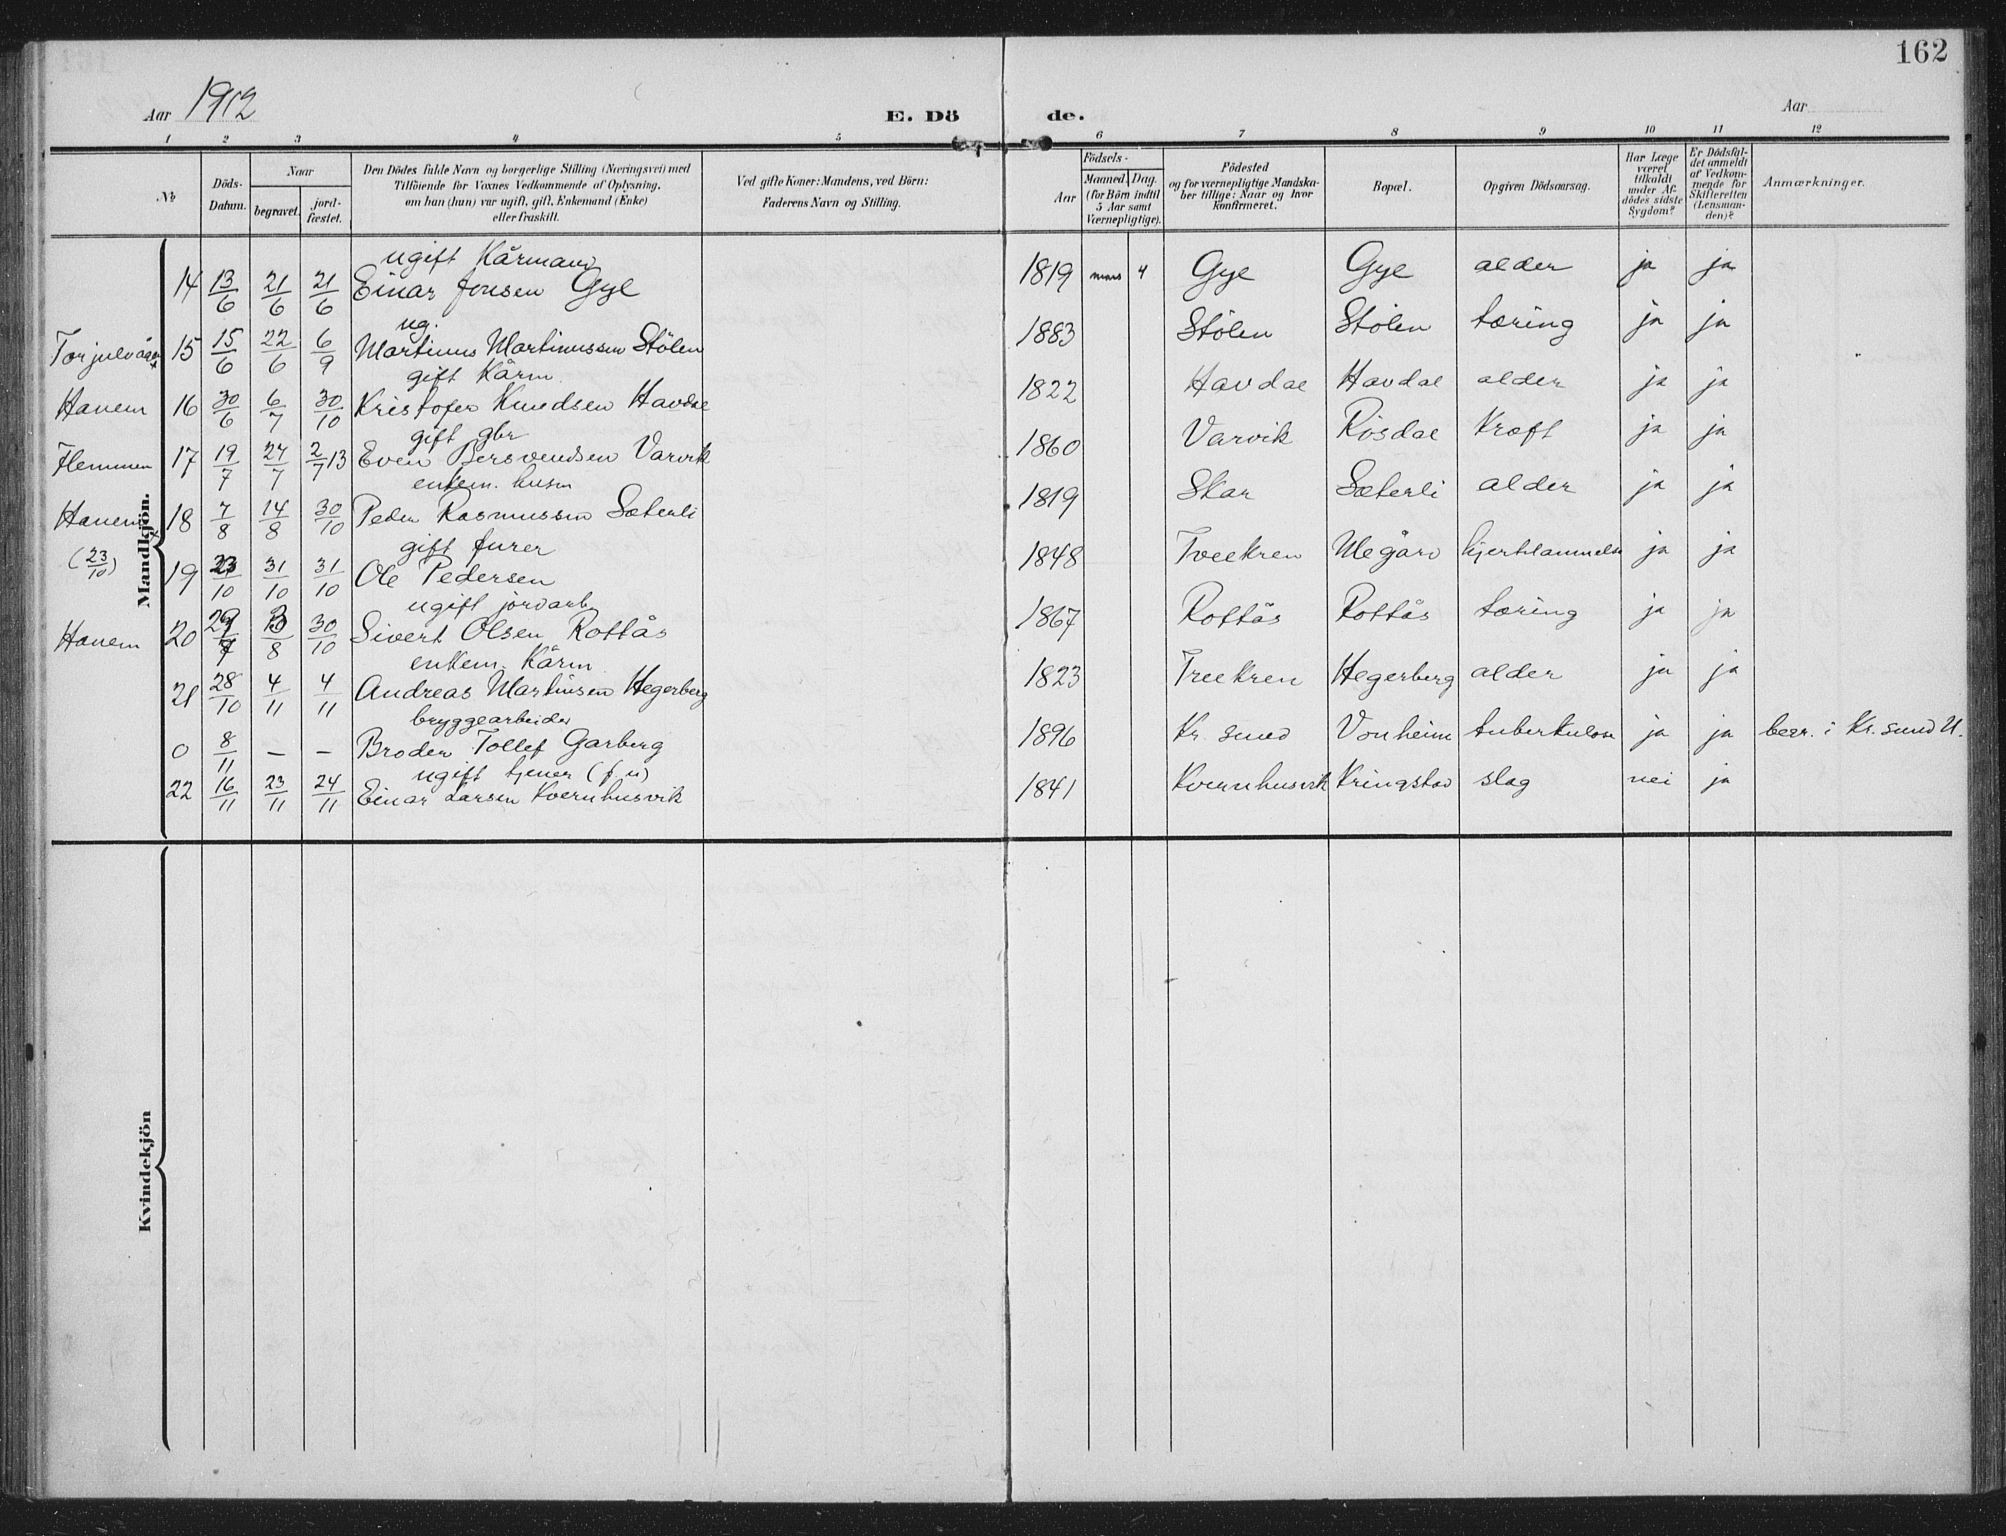 162
Aar 1912
E. Dö
de.
Aar
1 2 3 4 5 6 7 8 9 10 11 12
No
Döds-Datum.
Naar
begravet.
jord-fæstet.
Den Dödes fulde Navn og borgerlige Stilling (Næringsvei) med
Tilföiende for Voxnes Vedkommende af Oplysning,
om han (hun) var ugift, gift, Enkemand (Enke)
eller fraskilt.
Ved gifte Koner: Mandens, ved Börn:
Faderens Navn og Stilling.
Födsels-
Aar
Maaned. Dag.
(for Börn indtil
5 Aar samt
Værnepligtige).
Födested
og for værnepligtige Mandska-
ber tillige: Naar og hvor
konfirmeret.
Bopæl.
Opgiven Dödsaarsag.
Har Læge
været
tilkaldt
under Af-
dødes sidste
Sygdom?
Er Dödsfal-
det anmeldt
af Vedkom-
mende for
Skifteretten
(Lensman-
den)?
Anmærkninger.
Mandkjön.
ugift Kårmand
14 13/6 21/6 21/6 Einar Jonsen Gyl 1819 mars 4 Gyl Gyl alder ja ja
ug.
Torjulvågen 15 15/6 22/6 6/9 Martinus Martinussen Stölen 1883 Stölen Stölen tæring ja ja
gift Kårm
Hanem 16 30/6 6/7 30/10 Kristofer Knudsen Havdal 1822 Havdal Havdal alder ja ja
gift gbr
Flemmen 17 19/7 27/7 2/7 13 Even Bersvendsen Varvik 1860 Varvik Rösdal Kræft ja ja
enkem. husm
Hanem 18 7/8 14/8 30/10 Peder Rasmussen Sæterli 1819 Skar Sæterli alder ja ja
gift furer
(23/10) 19 23/10 31/10 31/10 Ole Pedersen 1848 Tveekren Megård hjertelammelse ja ja
ugift jordarb
Hanem 20 29/7 3/8 30/10 Sivert Olsen Rottås 1867 Rottås Rottås tæring ja ja
enkem. Kårm
21 28/10 4/11 4/11 Andreas Martinsen Hegerberg 1823 Treekren Hegerberg alder ja ja
bryggearbeider
0 8/11 — — Broder Tollef Garberg 1896 Kr. sund Vonheim tuberkulose ja ja begr. i Kr. sund N.
ugift tjener (f u)
22 16/11 23/11 24/11 Einar Larsen Kvernhusvik 1841 Kvernhusvik Kringstad slag nei ja
Kvindekjön